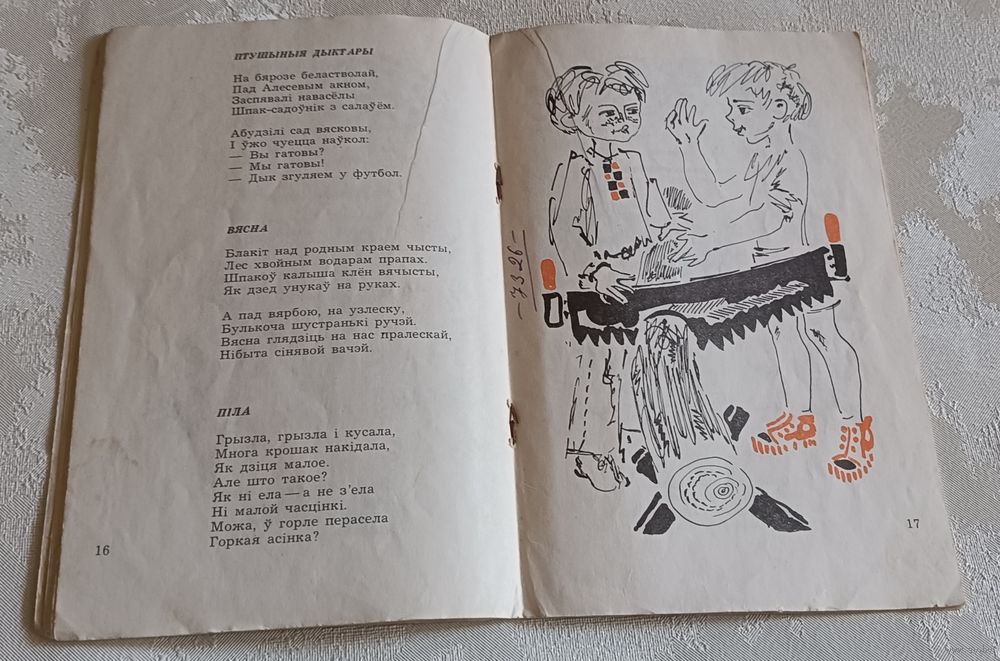 ПТУШЫНЫЯ ДЫКТАРЫ
На бярозе беластволай,
Пад Алесевым акном,
Заспявалі навасёлы
Шпак-садоўнік з салаўём.
Абудзілі сад вясковы,
І ўжо чуецца наўкол:
— Вы гатовы?
— Мы гатовы!
— Дык згуляем у футбол.
ВЯСНА
Блакіт над родным краем чысты,
Лес хвойным водарам прапах.
Шпакоў калыша клён вячысты,
Як дзед унукаў на руках.
А пад вярбою, на узлеску,
Булькоча шустранькі ручэй.
Вясна глядзіць на нас пралескай,
Нібыта сінявой вачэй.
ПІЛА
Грызла, грызла і кусала,
Многа крошак накідала,
Як дзіця малое.
Але што такое?
Як ні ела — а не з'ела
Ні малой часцінкі.
Можа, ў горле перасела
Горкая асінка?
16
— 7326 —
17